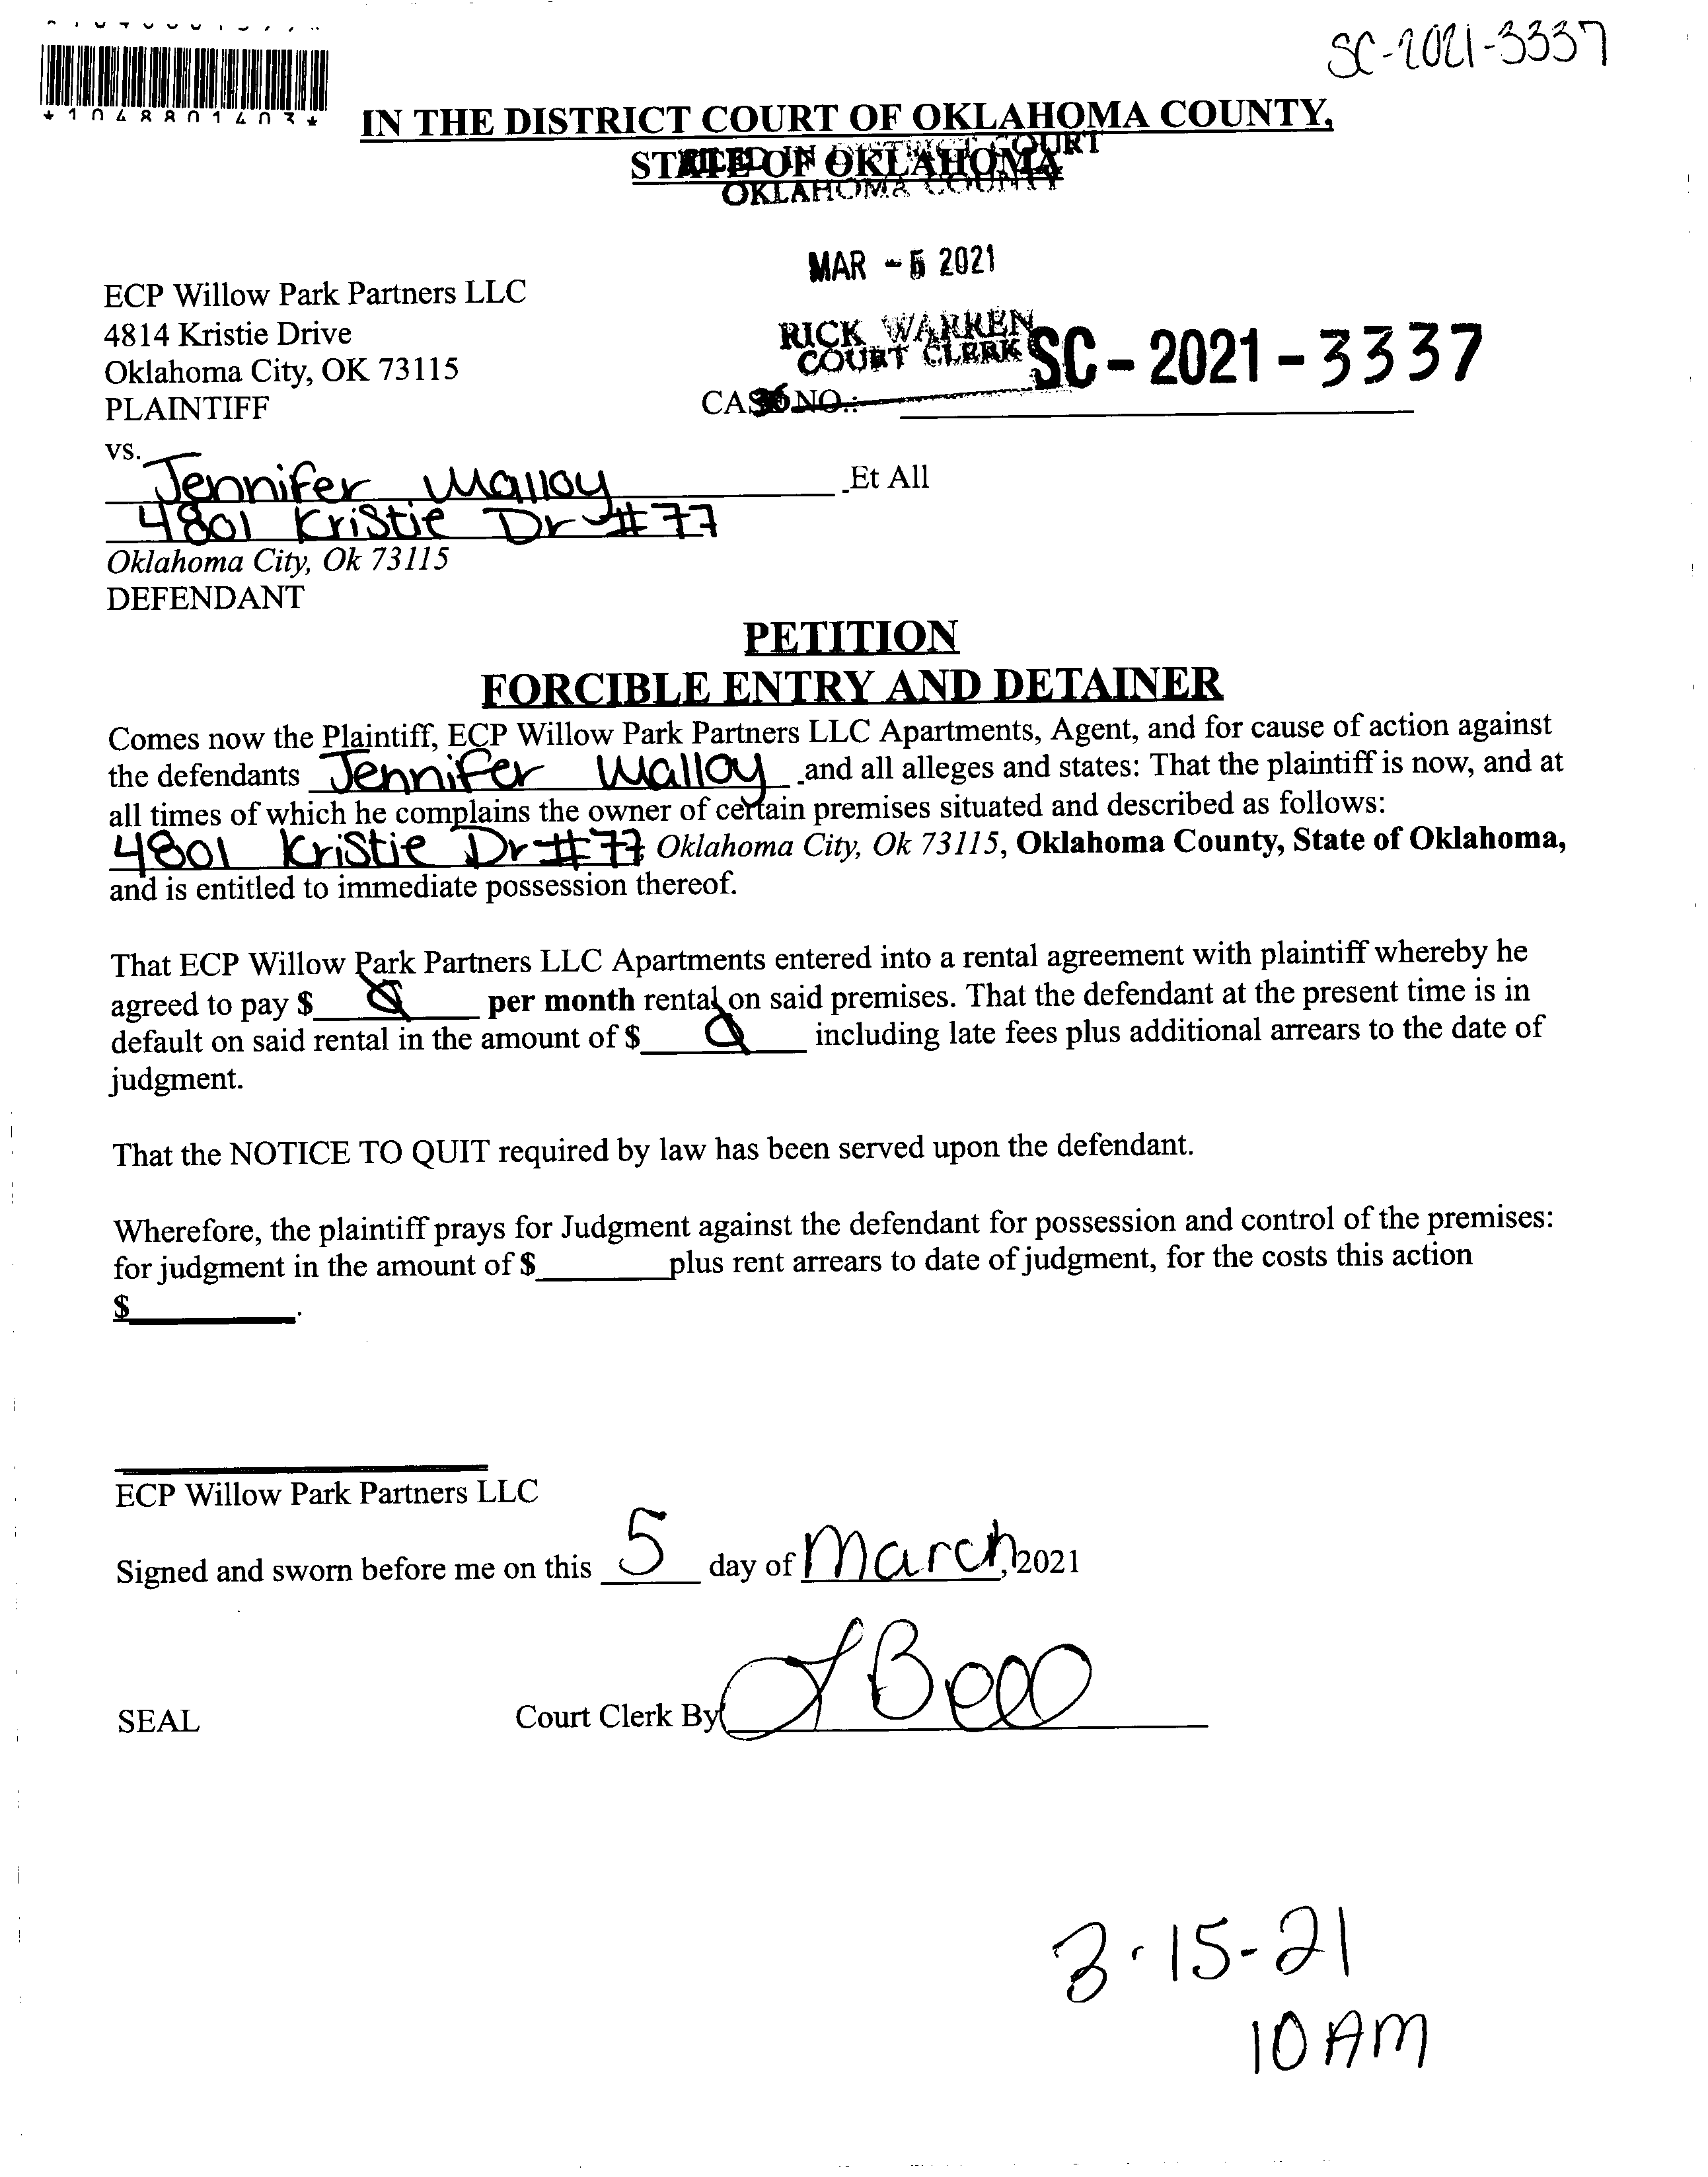 SC-2021-3337
*1048801403*
IN THE DISTRICT COURT OF OKLAHOMA COUNTY,
STATE OF OKLAHOMA
FILED IN DISTRICT COURT
OKLAHOMA COUNTY
MAR - 5 2021
ECP Willow Park Partners LLC
4814 Kristie Drive
Oklahoma City, OK 73115
PLAINTIFF
RICK WARREN
COURT CLERK
SC-2021-3337
CASE NO.:
vs.
Jennifer Malloy Et All
4801 Kristie Dr #77
Oklahoma City, Ok 73115
DEFENDANT
PETITION
FORCIBLE ENTRY AND DETAINER
Comes now the Plaintiff, ECP Willow Park Partners LLC Apartments, Agent, and for cause of action against
the defendants Jennifer Malloy and all alleges and states: That the plaintiff is now, and at
all times of which he complains the owner of certain premises situated and described as follows:
4801 Kristie Dr #77, Oklahoma City, Ok 73115, Oklahoma County, State of Oklahoma,
and is entitled to immediate possession thereof.
That ECP Willow Park Partners LLC Apartments entered into a rental agreement with plaintiff whereby he
agreed to pay $ per month rental on said premises. That the defendant at the present time is in
default on said rental in the amount of $ including late fees plus additional arrears to the date of
judgment.
That the NOTICE TO QUIT required by law has been served upon the defendant.
Wherefore, the plaintiff prays for Judgment against the defendant for possession and control of the premises:
for judgment in the amount of $________plus rent arrears to date of judgment, for the costs this action
$__________.
ECP Willow Park Partners LLC
Signed and sworn before me on this 5 day of March, 2021
SEAL Court Clerk By J Bell
3-15-21
10 AM